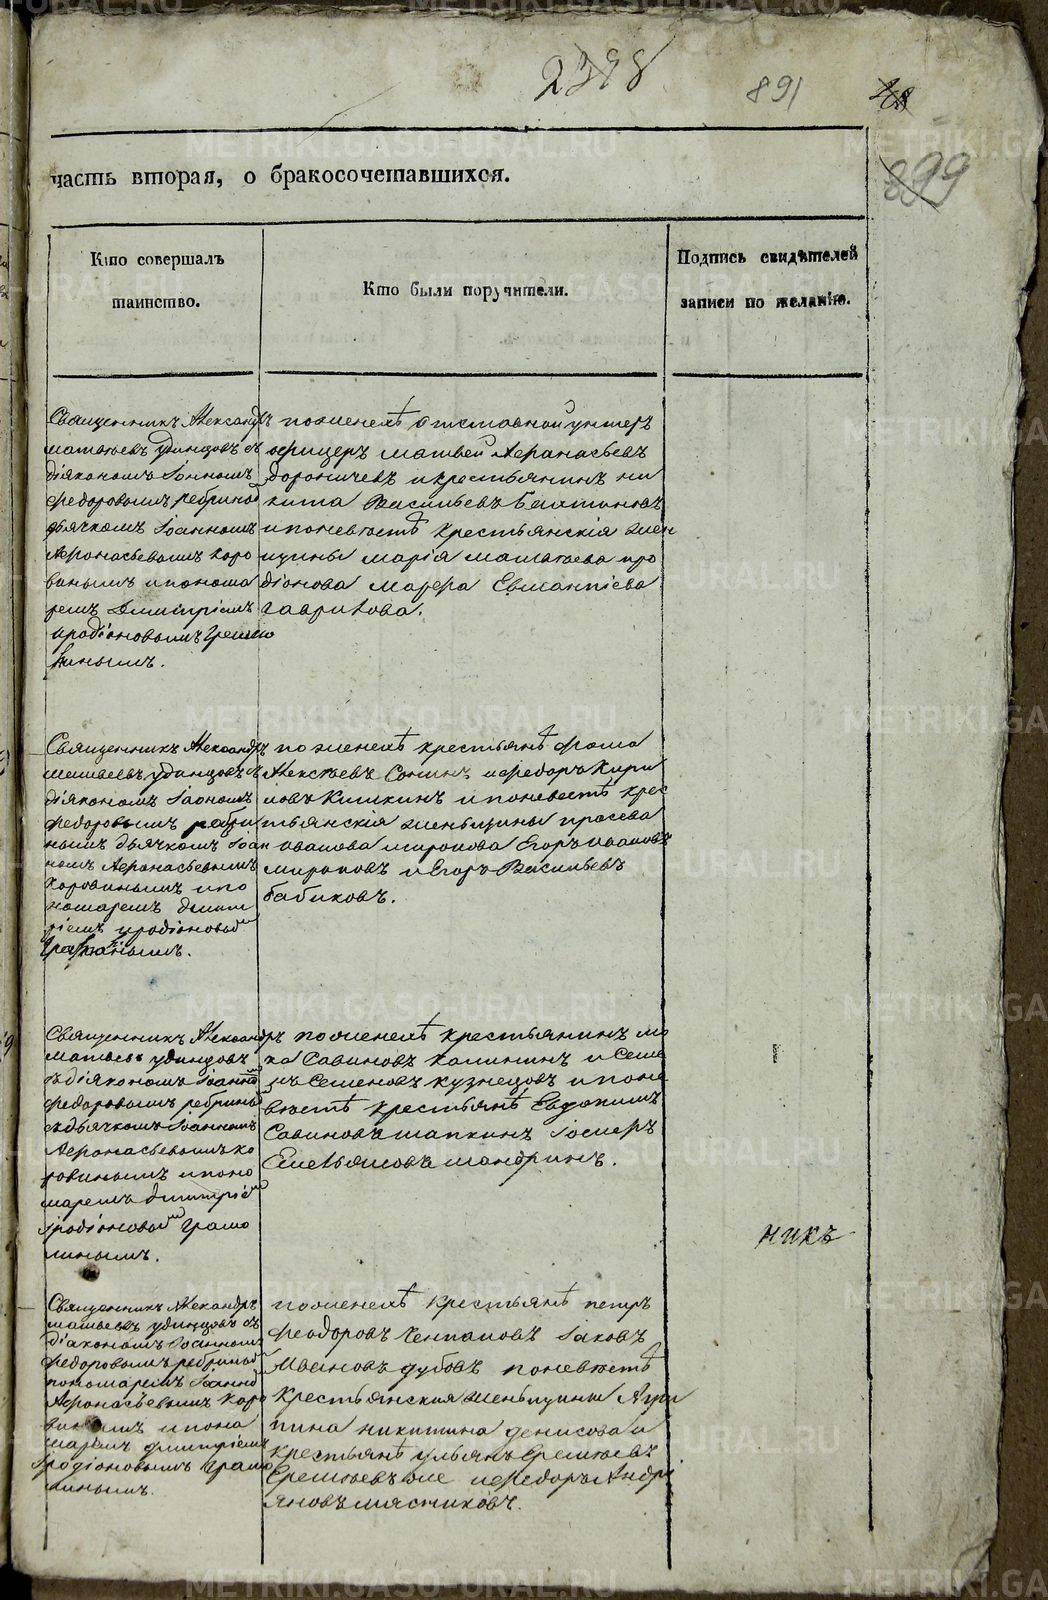 2398
891
899
часть вторая, о бракосочетавшихся.
Кто совершалъ
таинство.
Кто были поручители.
Подпись свидѣтелей
записи по желанію.
Священникъ Александръ
матвѣевъ удинцовъ съ
діякономъ Іоанномъ
Федоровымъ ребриным
дьячкомъ Іоанномъ
Афонасьевымъ коро
винымъ и понома
ремъ Димитріемъ
иродіоновымъ
по женихѣ отставной унтеръ
офицеръ матвей Афанасьевъ
дороничевъ и крестьянинъ ни
кита Васильевъ
и по невѣстѣ крестьянскія жен
щины марія матвѣева иро
діонова марфа Евлантіева
гаврилова.
Священникъ Александръ
матвеевъ удинцовъ съ
діякономъ Іаономъ
Федоровымъ ребри
нымъ дьячкомъ Іоан
номъ Афонасьевымъ
Коровинымъ и по
номаремъ димит
ріемъ иродіоновы
по женихѣ крестьянѣ фома
Алексѣевъ Сонинъ и федоръ Кири
ловъ Кишкинъ и по невестѣ крес
тьянскія женьщины
иванова миронова Егоръ ивановъ
мироновъ и Егоръ Васильевъ
бабиковъ.
Священникъ Александръ
матвѣевъ удинцовъ
съ діякономъ Іоанно
федоровымъ ребринымъ
съ дьячкомъ Іоанномъ
Афонасьевымъ ко
ровинымъ и поно
маремъ димитріе
іродіоновы
по женихѣ крестьянинъ
ка Савиновъ калининъ и Семе
нъ Семеновъ кузнецовъ и по не
вѣстѣ крестьянѣ Евдокимъ
Савиновъ шапкинъ Іосифъ
Емельяновъ шандринъ.
никъ
Священникъ Александръ
матвѣевъ удинцовъ съ
діакономъ Іоанномъ
федоровымъ ребриным
пономаремъ Іоанно
Афонасьевымъ коро
винымъ и поно
маремъ димитріемъ
Іродіоновымъ
по женихѣ крестьянѣ петръ
феодоровъ Іаковъ
Ивановъ дубовъ по невѣстѣ
крестьянския женьщины Агри
пина никитина денисова и
крестьянѣ ульянъ Еремѣевъ
Еремѣевъ же и федоръ Андрі
яновъ мясниковъ.